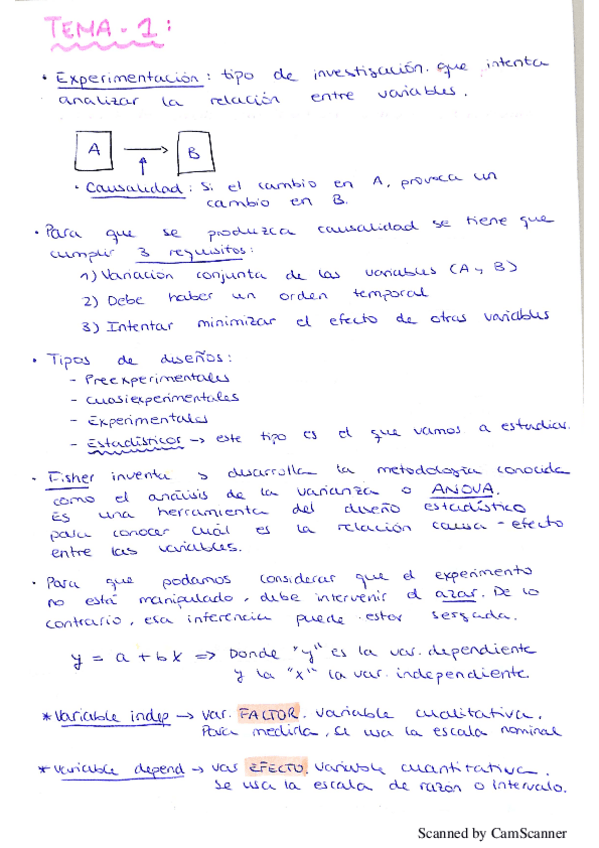 TEMA-1:
• Experimentación: tipo de investigación que intenta
analizar la relación entre variables.
A → B
↑
• Causalidad: Si el cambio en A, provoca un
cambio en B.
• Para que se produzca causalidad se tiene que
cumplir 3 requisitos:
1) Variación conjunta de las variables (A y B)
2) Debe haber un orden temporal
3) Intentar minimizar el efecto de otras variables
• Tipos de diseños:
- Preexperimentales
- cuasiexperimentales
- Experimentales
- Estadísticos → este tipo es el que vamos a estudiar.
• Fisher inventa y desarrolla la metodología conocida
como el análisis de la varianza o ANOVA.
Es una herramienta del diseño estadístico
para conocer cuál es la relación causa-efecto
entre las variables.
• Para que podamos considerar que el experimento
no está manipulado, debe intervenir el azar. De lo
contrario, esa inferencia puede estar sesgada.
y = a + bx => Donde "y" es la var. dependiente
y la "x" la var. independiente.
* Variable indep → var. FACTOR. variable cualitativa.
Para medirla, se usa la escala nominal
* Variable depend → var EFECTO. variable cuantitativa.
Se usa la escala de razón o intervalo.
Scanned by CamScanner